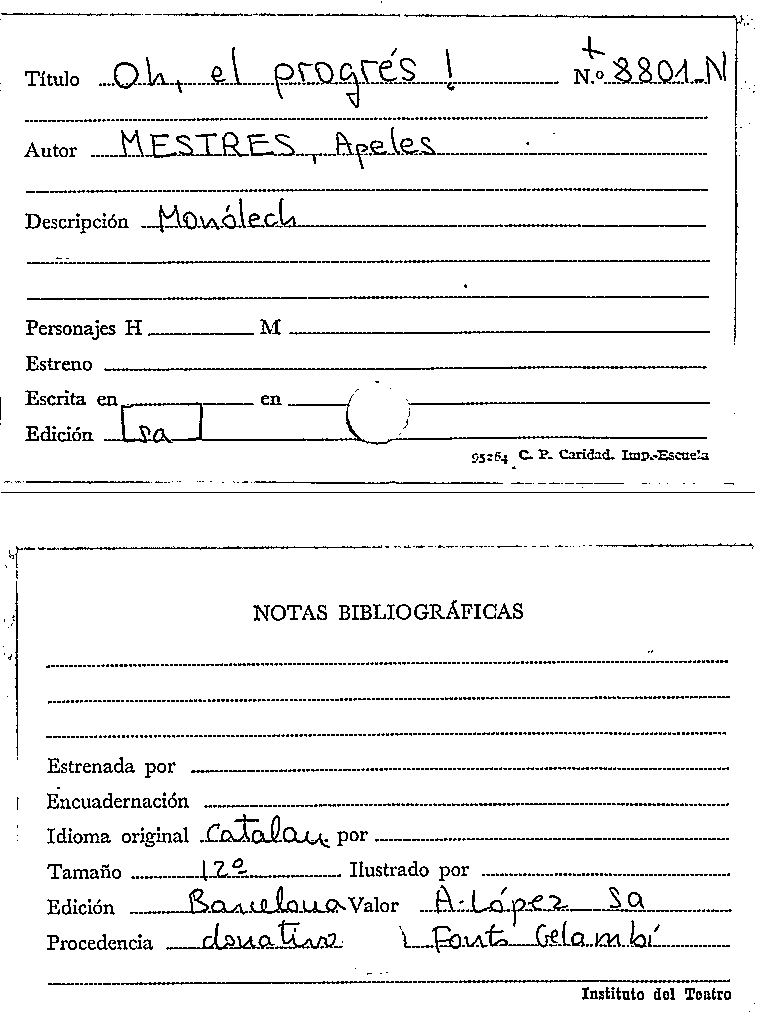 Título Oh, el progrés! N.º 8801-N
Autor MESTRES, Apeles
Descripción Monólech
Personajes H M
Estreno
Escrita en en
Edición sa
95264 C. P. Caridad. Imp.-Escuela
NOTAS BIBLIOGRÁFICAS
Estrenada por
Encuadernación
Idioma original Catalan por
Tamaño 12º Ilustrado por
Edición Barcelona Valor A. López sa
Procedencia donativo Fonts Gelambí
Instituto del Teatro